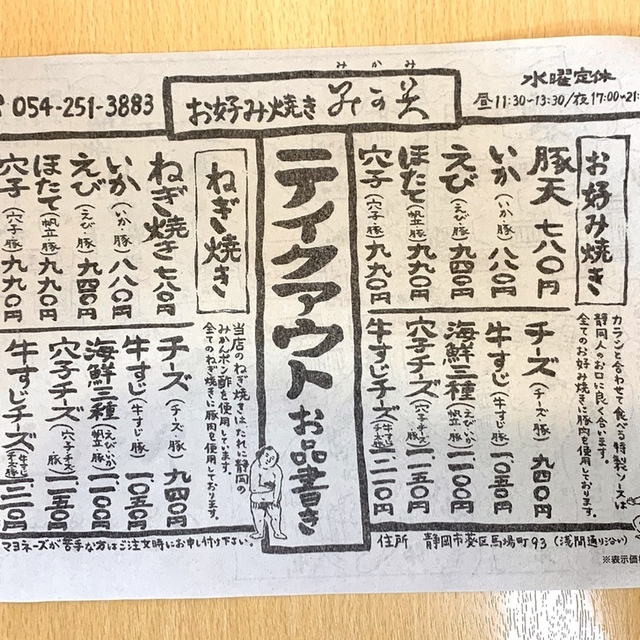 054-251-3883
みかみ
お好み焼き みかみ
水曜定休
昼11:30~13:30/夜17:00~21:
お好み焼き
豚天 七八〇円
いか(いか・豚)八八〇円
えび(えび・豚)九四〇円
ほたて(帆立・豚)九九〇円
穴子(穴子・豚)九九〇円
カラシと合わせて食べる特製ソースは
静岡人のお口に良く合います。
全てのお好み焼きに豚肉を使用しております。
チーズ(チーズ・豚)九四〇円
牛すじ(牛すじ・豚)一、〇五〇円
海鮮三種(えび・いか・帆立)一、一〇〇円
穴子チーズ(穴子・チーズ・豚)一、一五〇円
牛すじチーズ(牛すじ・チーズ・豚)一、二一〇円
テイクアウトお品書き
ねぎ焼き
ねぎ焼き 七八〇円
いか(いか・豚)八八〇円
えび(えび・豚)九四〇円
ほたて(帆立・豚)九九〇円
穴子(穴子・豚)九九〇円
当店のねぎ焼きはたれに静岡の
みかんポン酢を使用してます。
全てのねぎ焼きに豚肉を使用しております。
チーズ(チーズ・豚)九四〇円
牛すじ(牛すじ・豚)一、〇五〇円
海鮮三種(えび・いか・帆立)一、一〇〇円
穴子チーズ(穴子・チーズ)一、一五〇円
牛すじチーズ(牛すじ・チーズ・豚)一、二一〇円
マヨネーズが苦手な方はご注文時にお申し付け下さい。
住所 静岡市葵区馬場町93(浅間通り沿い)
※表示価格